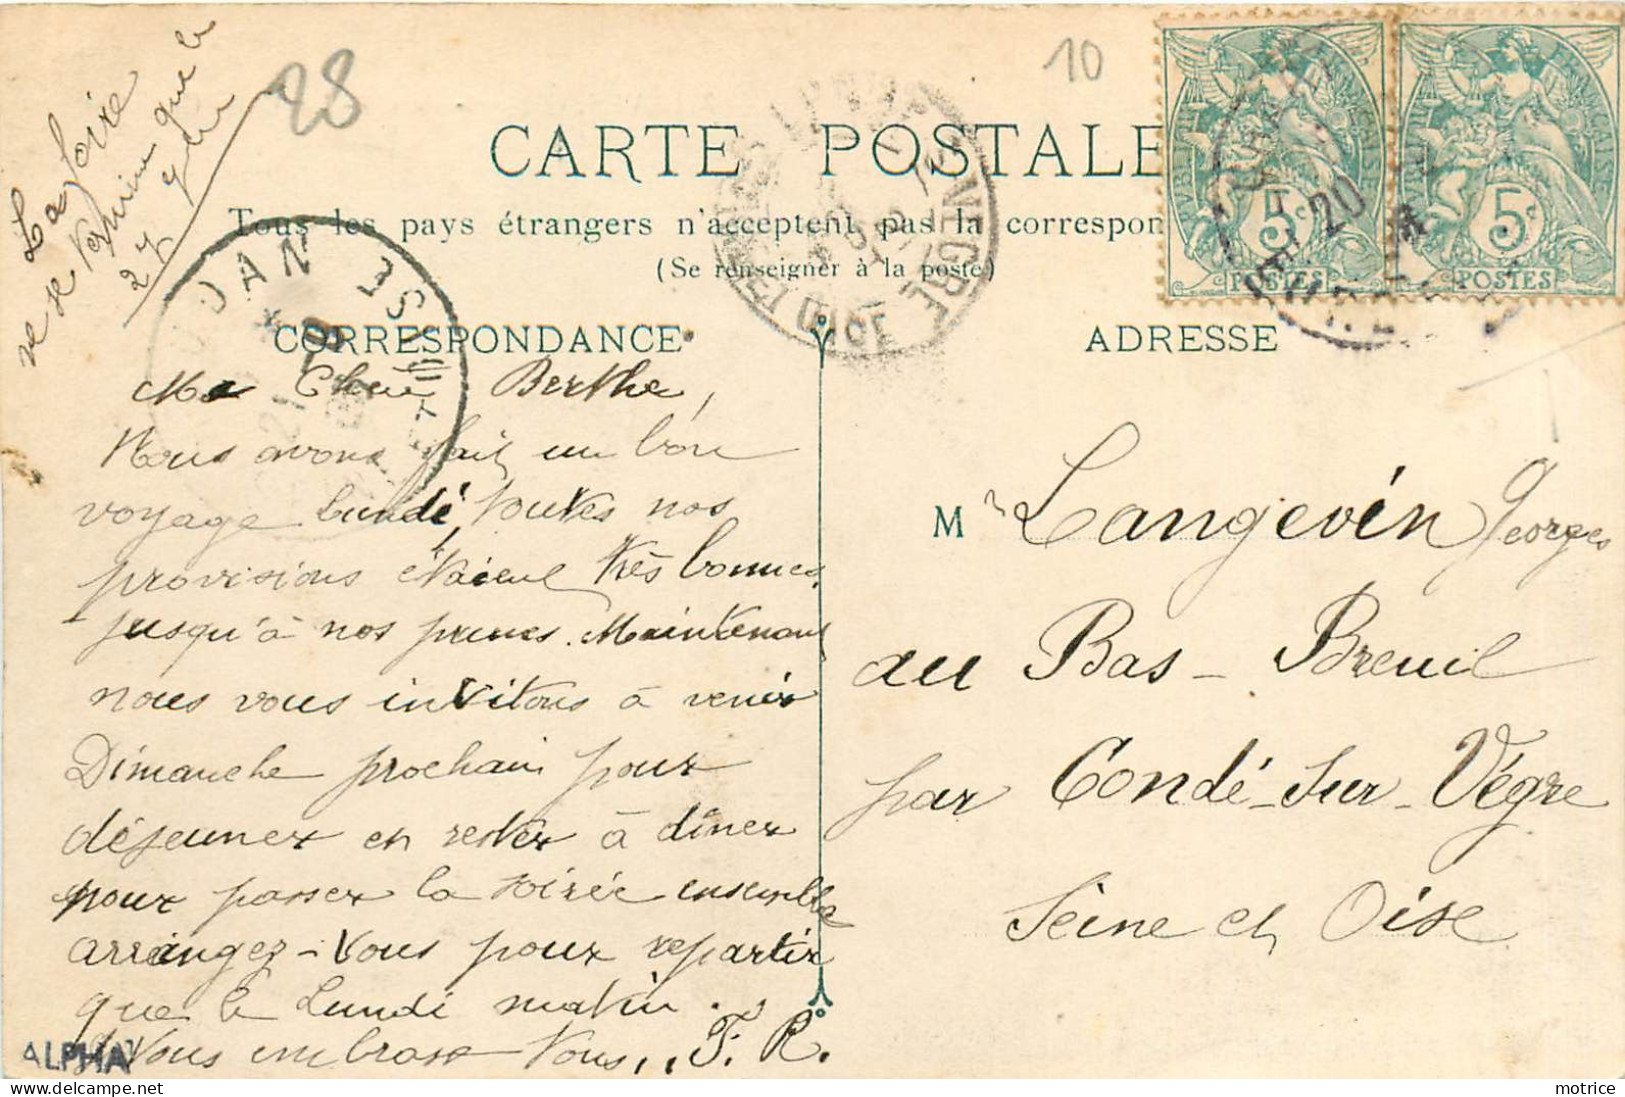 La foire
ne se termine que le
27 
28
10
CARTE POSTALE
Tous les pays étrangers n'acceptent pas la correspon
(Se renseigner à la poste)
CORRESPONDANCE
ADRESSE
RÉPUBLIQUE FRANÇAISE
5c
POSTES
5c
POSTES
Ma Chère Berthe,
Nous avons fait un bon
voyage lundi, toutes nos
provisions étaient très bonnes
jusqu'à nos prunes. Maintenant
nous vous invitons à venir
Dimanche prochain pour
déjeuner et rester à dîner
pour passer la soirée ensemble
arrangez-vous pour repartir
que le Lundi matin.
Nous embrasse vous, F. R.
Mr Langevin Georges
au Bas-Breuil
par Condé-sur-Vègre
Seine et Oise
ALPHA
motrice